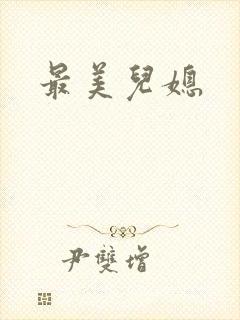 最美兒媳
尹雙增